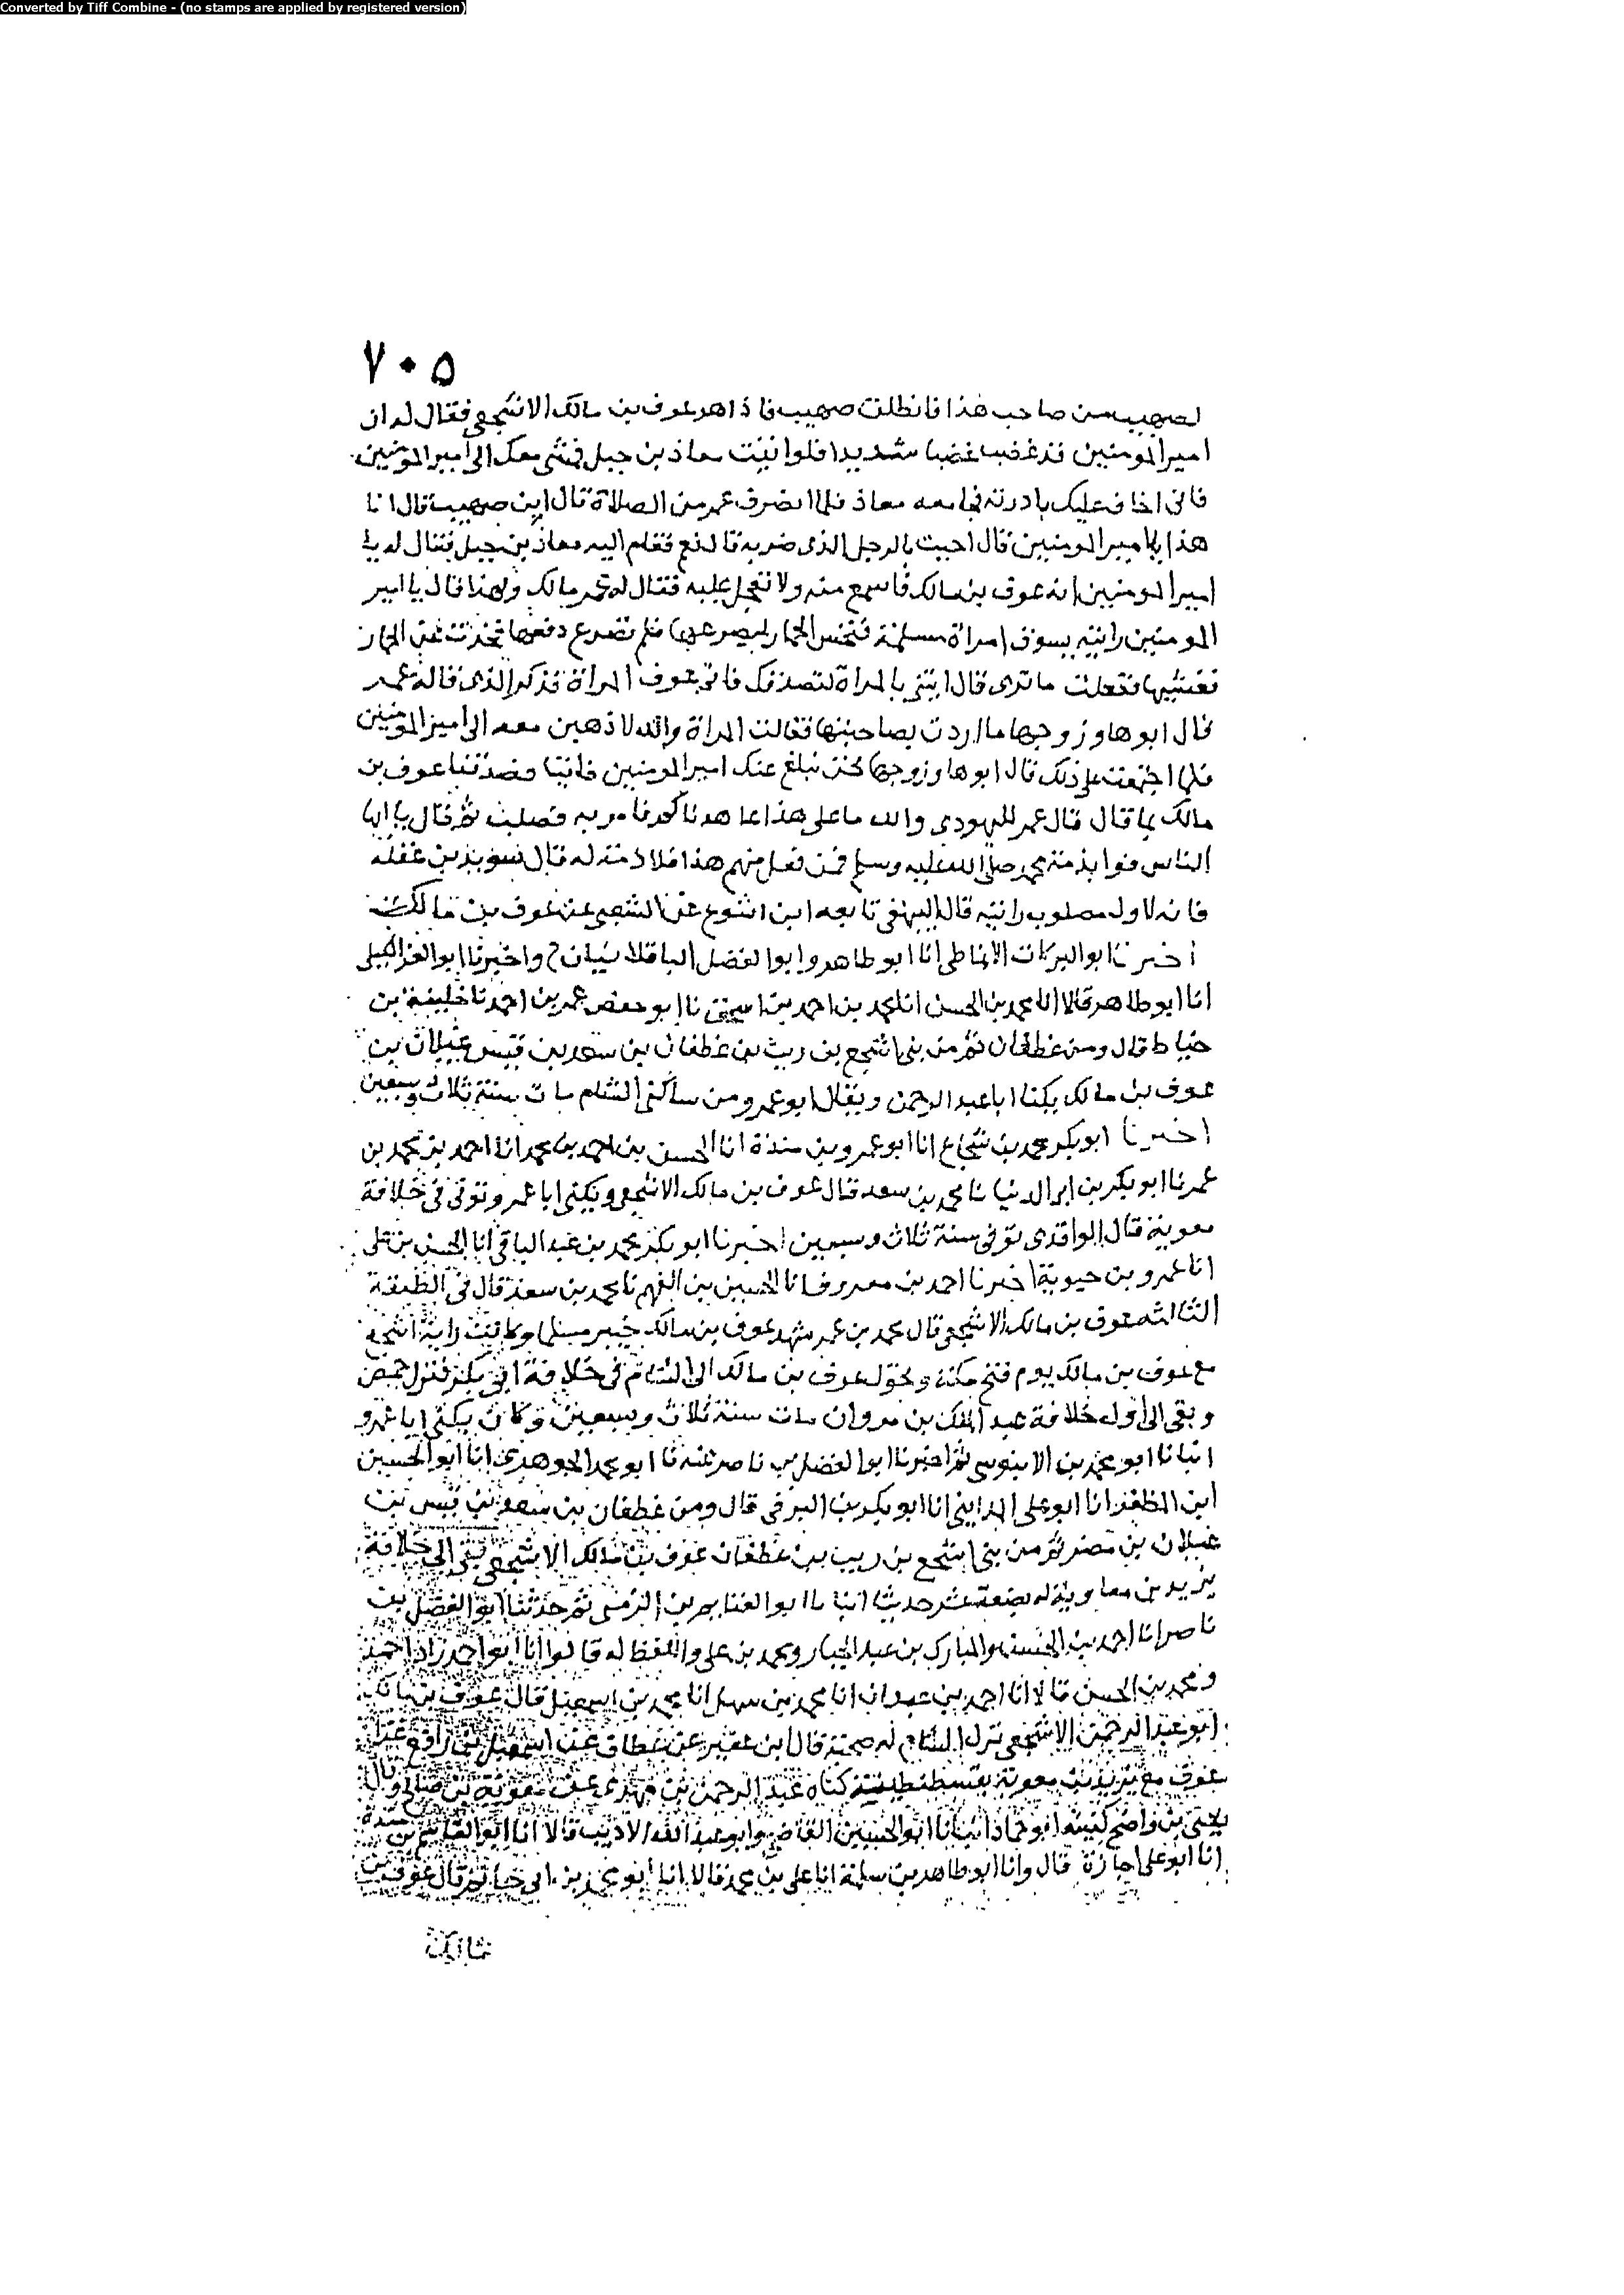 Converted by Tiff Combine - (no stamps are applied by registered version)
٧٠٥
لصهيب من صاحب هذا فانطلت صهيب فاذا هو عوف بن مالك الاشجعي فقال له ان
امير المومنين قد غضب غضبا شديدا فلو اتيت معاذ بن جبل فمشى معك الى امير المومنين
فانى اخاف عليك بادرته فجا معه معاذ فلما انصرف عمر من الصلاة قال اين صهيب قال انا
هذا يا امير المومنين قال اجيت بالرجل الذى ضربه قال نعم فقام اليه معاذ بن جبل فقال له يا
امير المومنين انه عوف بن مالك فاسمع منه ولا تعجل عليه فقال له عمر مالك ولهذا قال يا امير
المومنين رايته يسوق امراة مسلمة فنخس الحمار ليصرعها فلم تصرع دفعها فخرت عن الحمار
فغشيها ففعلت ما ترى قال ايتنى بالمراة لتصدقك فاتى عوف المراة فذكر الذى قاله عمر
قال ابوها وزوجها ما اردت بصاحبتنا فقالت المراة والله لاذهبن معه الى امير المومنين
فلما اجتمعت على ذلك قال ابوها وزوجها نحن نبلغ عنك امير المومنين فاتيا فصدقنا عوف بن
مالك بما قال قال عمر لليهودى والله ما على هذا عاهدناكم فامر به فصلب ثم قال يا ايها
الناس فوا بذمة محمد صلى الله عليه وسلم فمن فعل منهم هذا فلا ذمة له قال سويد بن غفلة
فانه لاول مصلوب رايته قال البيهقى تابعه ابن اشوع عن الشعبى عن عوف بن مالك
اخبرنا ابو البركات الانماطى انا ابو طاهر وابو الفضل الباقلانيان ح واخبرنا ابو العز الكيلى
انا ابو طاهر قالا انا محمد بن الحسن انا محمد بن احمد بن اسحق نا ابو حفص عمر بن احمد نا خليفة بن
خياط قال ومن غطفان ثم من بنى اشجع بن ريث بن غطفان بن سعد بن قيس عيلان بن
عوف بن مالك يكنا ابا عبد الرحمن ويقال ابو عمرو من ساكنى الشام مات سنة ثلاث وسبعين
اخبرنا ابو بكر محمد بن شجاع انا ابو عمرو بن مندة انا الحسن بن احمد بن محمد انا احمد بن محمد بن
عمر نا ابو بكر بن ابى الدنيا نا محمد بن سعد قال عوف بن مالك الاشجعى ويكنى ابا عمرو توفى فى خلافة
معوية قال الواقدى توفى سنة ثلاث وسبعين اخبرنا ابو بكر محمد بن عبد الباقى انا الحسن بن على
انا عمرو بن حيوية اخبرنا احمد بن معروف انا الحسين بن الفهم نا محمد بن سعد قال فى الطبقة
الثالثة عوف بن مالك الاشجعى قال محمد بن عمر شهد عوف بن مالك خيبر مسلما وكانت راية اشجع
مع عوف بن مالك يوم فتح مكة وتحول عوف بن مالك الى الشام فى خلافة ابى بكر فنزل حمص
وبقى الى اول خلافة عبد الملك بن مروان مات سنة ثلاث وسبعين وكان يكنى ابا عمرو
انبانا ابو محمد بن الابنوسى ثم اخبرنا ابو الفضل بن ناصر عنه نا ابو محمد الجوهرى انا ابو الحسين
ابن المظفر انا ابو على المداينى انا ابو بكر بن البرقى قال ومن غطفان بن سعد بن قيس بن
عيلان بن مضر ثم من بنى اشجع بن ريب بن غطفان عوف بن مالك الاشجعى بقى الى خلافة
يزيد بن معاوية له بضعة عشر حديثا انبانا ابو الغنايم بن النرسى ثم حدثنا ابو الفضل بن
ناصر انا احمد بن الحسن والمبارك بن عبد الجبار ومحمد بن على واللفظ له قالوا انا ابو احمد زاد احمد
ومحمد بن الحسن قالا انا احمد بن عبدان انا محمد بن سهل انا محمد بن اسمعيل قال عوف بن مالك
ابو عبد الرحمن الاشجعى نزل الشام له صحبة قال ابن عفير عن عطاف عن اسمعيل بن رافع غزا
عوف مع يزيد بن معوية بقسطنطينية كناه عبد الرحمن بن مهدى عن معوية بن صالح وقال
يحيى بن واضح كنيته ابو حماد انبانا ابو الحسين القاضى وابو عبد الله الاديب قالا انا ابو القاسم بن مندة
انا ابو على اجازة قال وانا ابو طاهر بن سلمة انا على بن محمد قالا انا ابو محمد بن ابى حاتم قال عوف بن
مالك